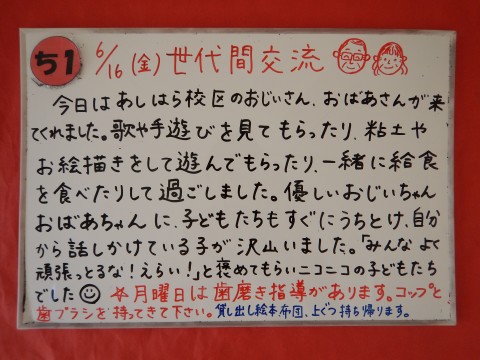 ち1 6/16(金)世代間交流
今日はあしはら校区のおじいさん、おばあさんが来
てくれました。歌や手遊びを見てもらったり、粘土や
お絵描きをして遊んでもらったり、一緒に給食
を食べたりして過ごしました。優しいおじいちゃん
おばあちゃんに、子どもたちもすぐにうちとけ、自分
から話しかけている子が沢山いました。「みんなよく
頑張っとるな！えらい！」と褒めてもらいニコニコの子どもたち
でした☺ ☆月曜日は歯磨き指導があります。コップと
歯ブラシを持ってきて下さい。貸し出し絵本布団、上ぐつ持ち帰ります。